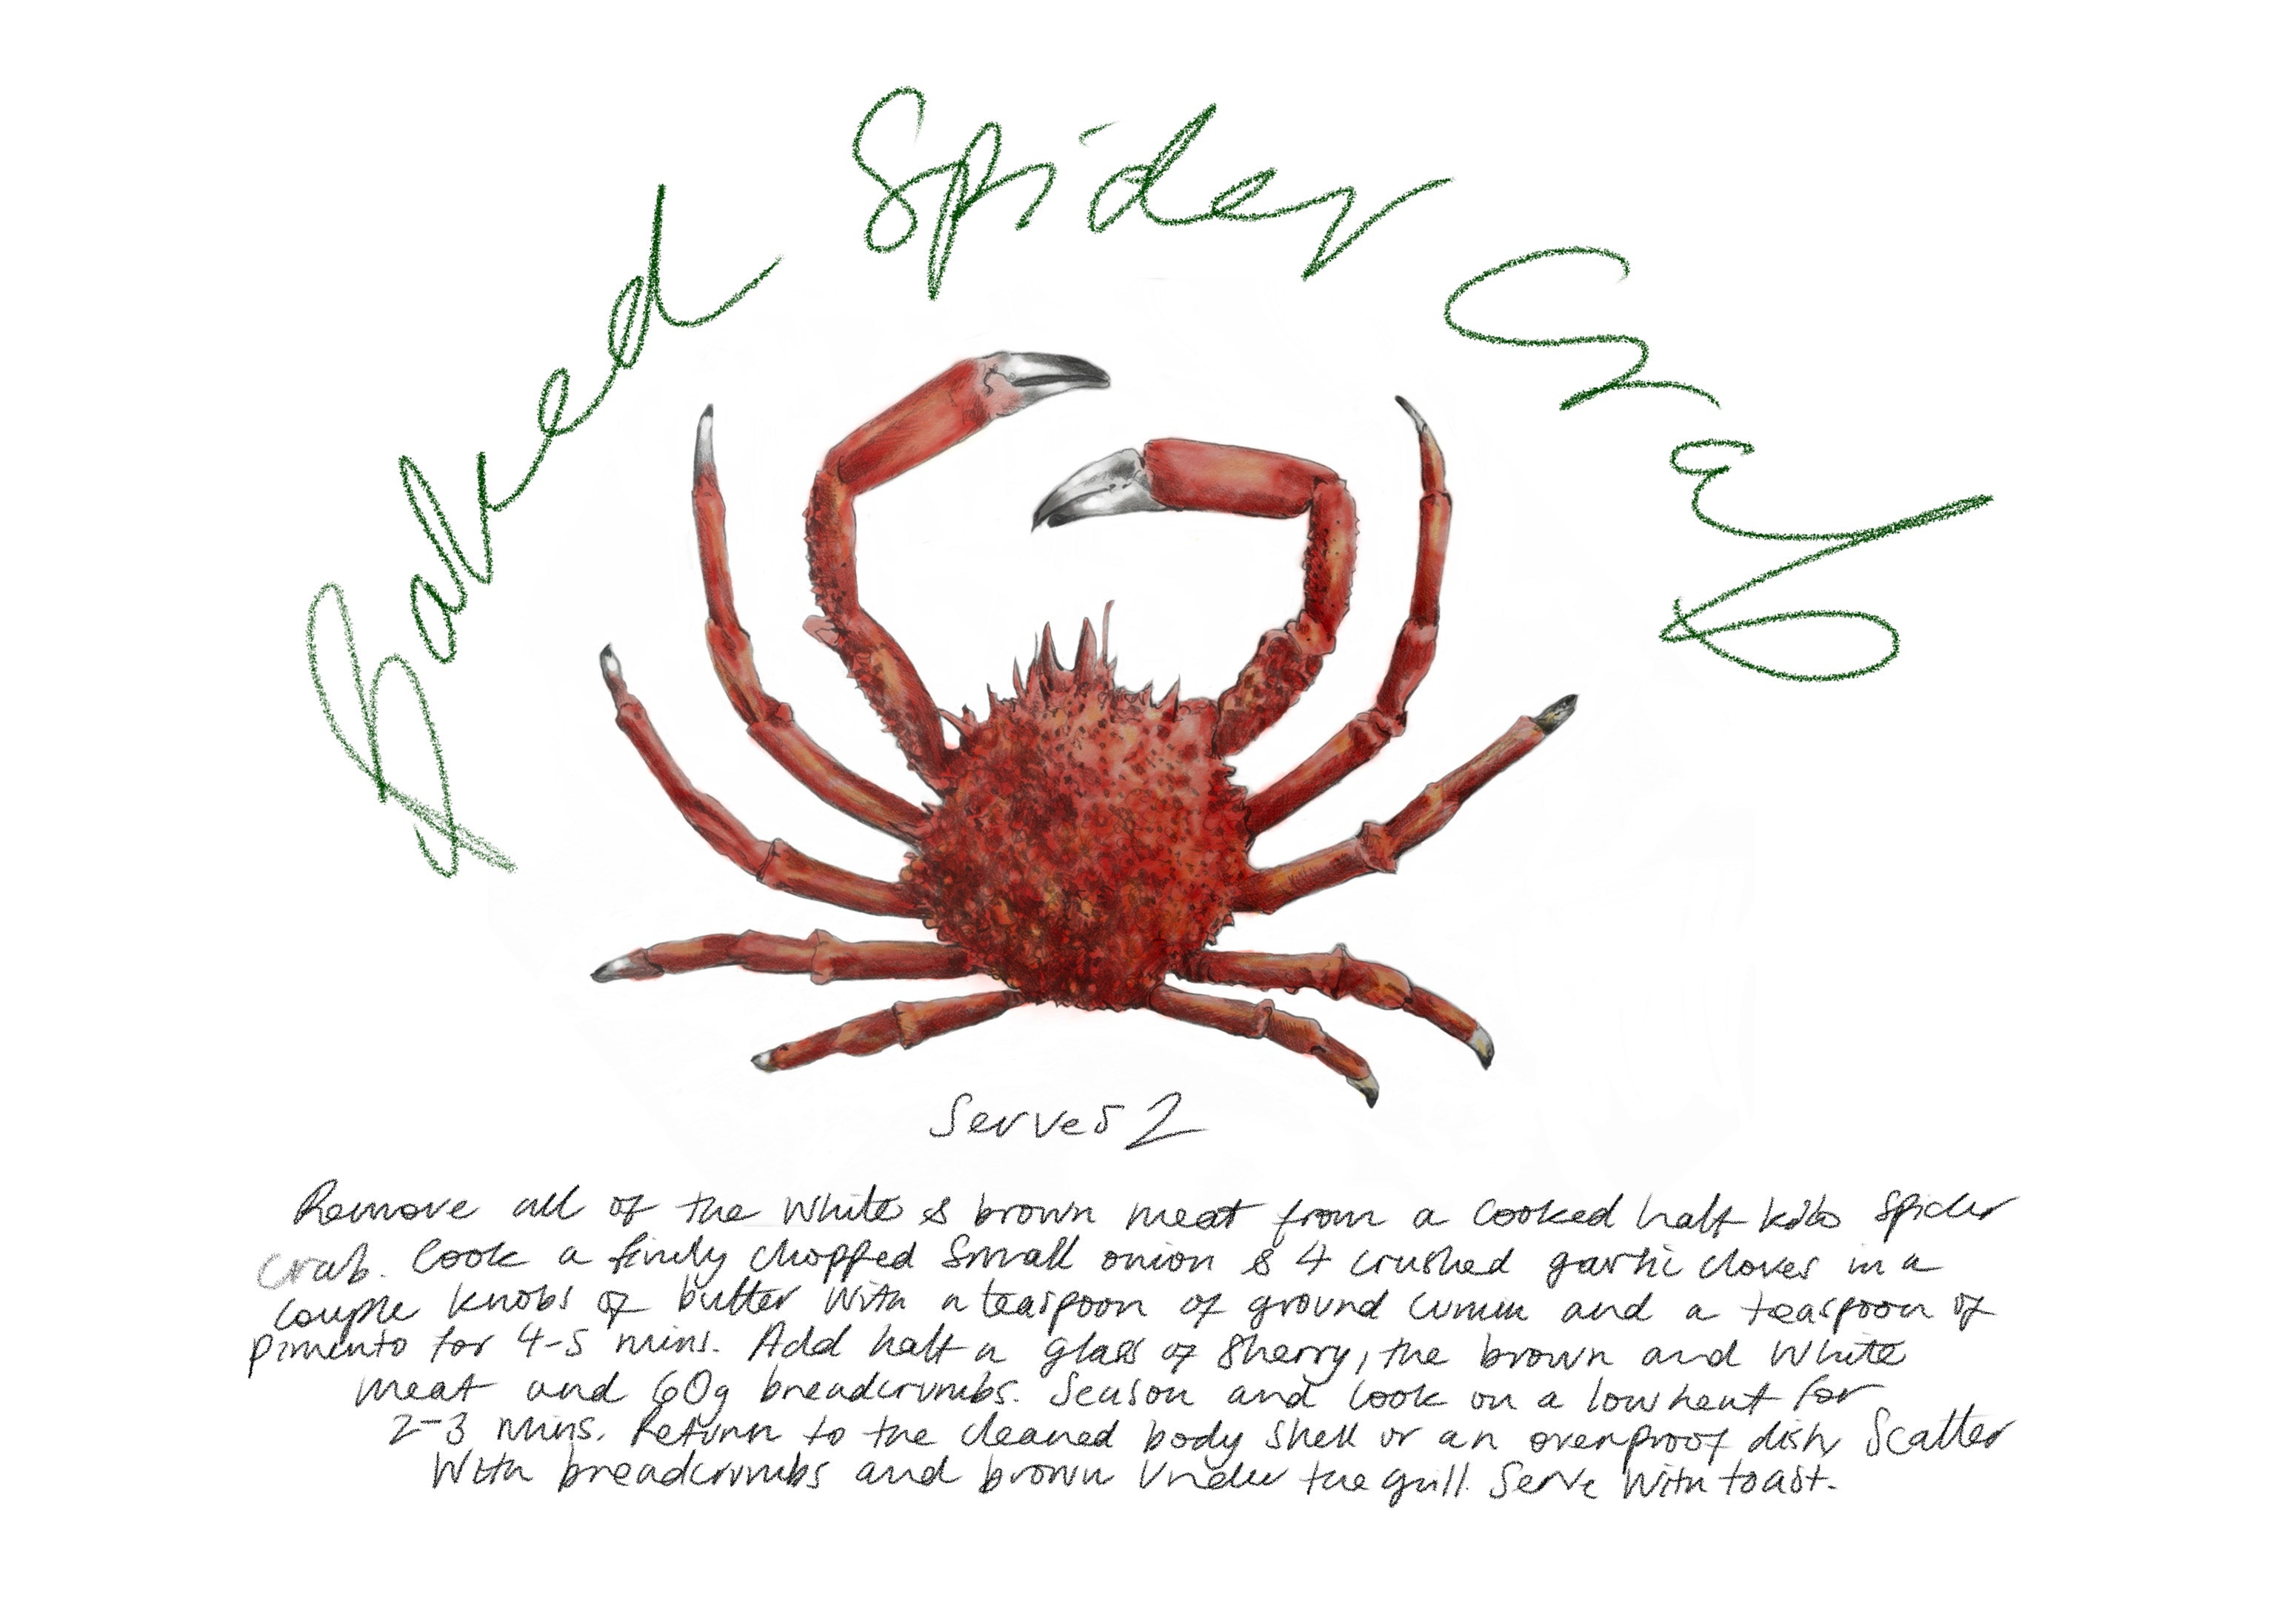 Baked Spider Crab
Serves 2
Remove all of the white & brown meat from a cooked half kilo spider
crab. Cook a finely chopped small onion & 4 crushed garlic cloves in a
couple knobs of butter with a teaspoon of ground cumin and a teaspoon of
pimento for 4-5 mins. Add half a glass of sherry, the brown and white
meat and 60g breadcrumbs. Season and cook on a low heat for
2-3 mins. Return to the cleaned body shell or an ovenproof dish, Scatter
with breadcrumbs and brown under the grill. Serve with toast.